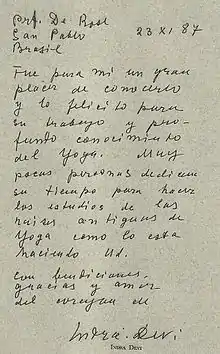 Prof. De Rose
San Pablo 23 XI 87
Brasil
Fue para mi un gran
placer de conocerlo
y lo felicito para
su trabajo y pro-
fundo conocimiento
del Yoga. Muy
pocas personas dedican
su tiempo para hacer
los estudios de las
raises antiguas de
Yoga como lo esta
haciendo Ud.
Con bendiciones,
gracias y amor
del corazon de
Indra Devi
INDRA DEVI